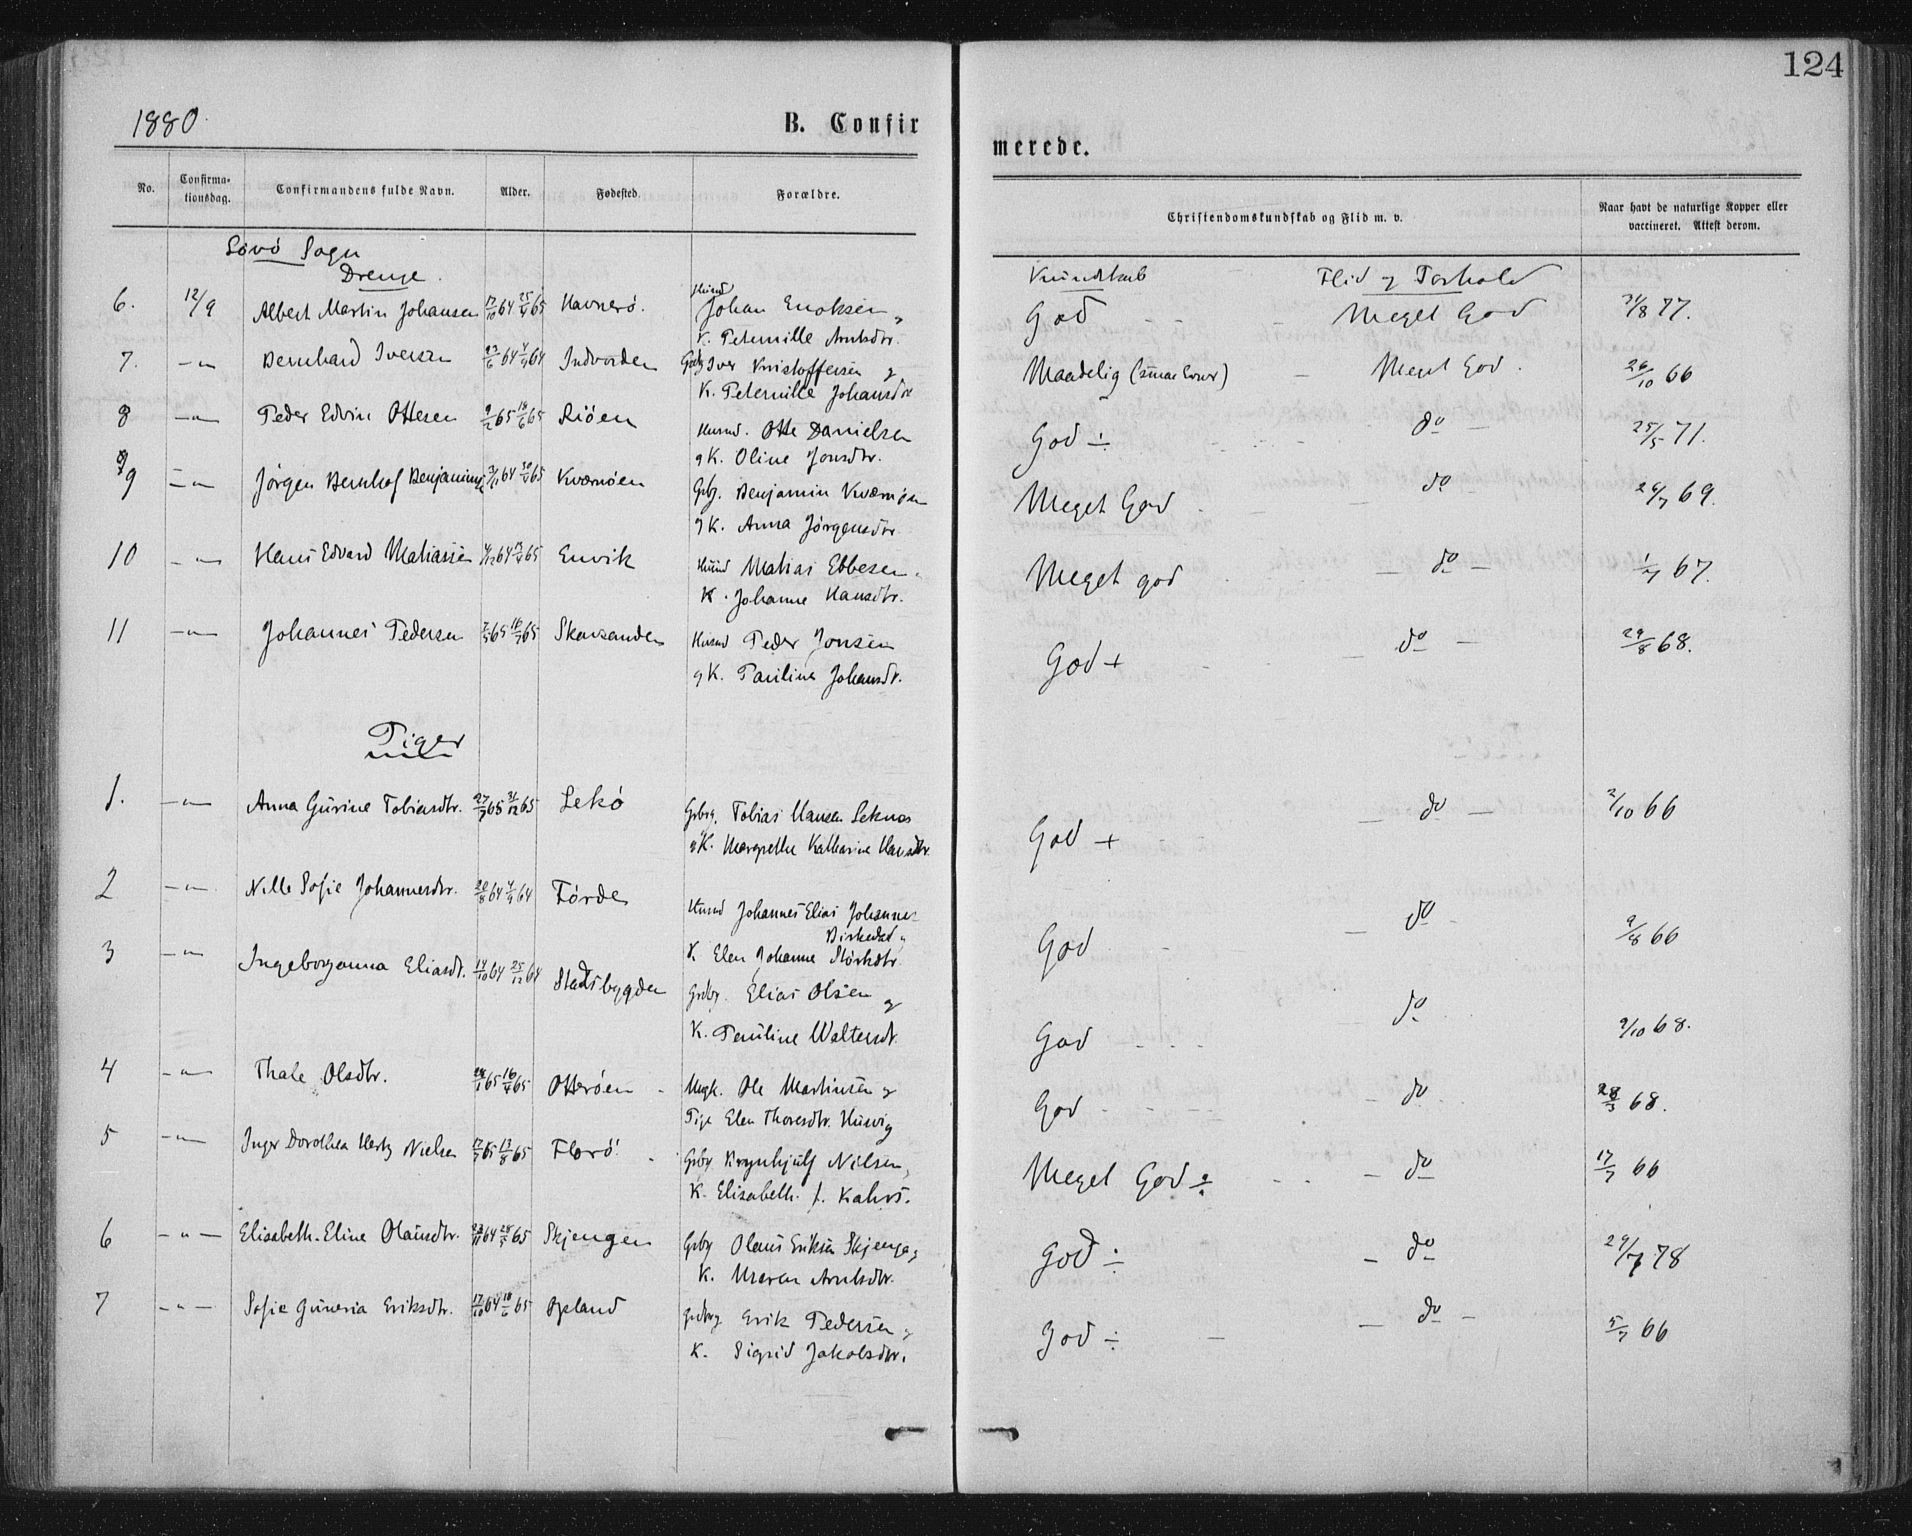 124
1880.
B. Confir
merede.
No.
Confirma-
tionsdag.
Confirmandens fulde Navn.
Alder.
Fødested.
Forældre.
Christendomskundskab og Flid m. v.
Naar havt de naturlige Kopper eller
vaccineret. Attest derom.
Sørø Sogn
Drenge.
Kundskab Flid og Forhold
6. 12/9 Albert Martin Johansen 17/10 64 25/4 65 Havnerø. Husmd Johan Enoksen og
K. Petermille Arntsdtr. God Meget God 31/8 77.
7. -"- Bernhard Iversen 23/6 64 4/9 64 Indvorden Grbg Iver Kristoffersen og
K. Petermille Johansdtr Maadelig Meget God. 26/10 66
8 -"- Peder Edvin Ottesen 9/2 65 18/6 65 Riøen Husmd. Otte Danielsen
og K. Oline Jonsdtr. God ÷ do 25/5 71.
9 -"- Jørgen Bernhof Benjamins 3/11 64 30/4 65 Kværnøen Grbg. Benjamin Kværnøen
og K. Anna Jørgensdtr. Meget God do 26/7 69.
10 -"- Hans Edvard Mathiassen 4/12 64 17/4 65 Envik Husmd Mathias Ebbesen
K. Johanne Hansdtr. Meget god - do - 1/7 67.
11 -"- Johannes Pedersen 7/5 65 16/7 65 Skavsanden Husmd Peder Jonsen
og K. Pauline Johansdtr. God + - do - 29/8 68.
Piger
1. -"- Anna Gurine Tobiasdtr. 27/9 65 31/12 65 Lekø Grbrg. Tobias Hansen Leknes
og K. Margrethe Katharine Hansdtr. God + - do - 2/10 66
2 -"- Nille Sofie Johannesdtr. 20/8 64 4/9 64 Førde Husmd Johannes Elias Johannes
Birkedal og
K Elen Johanne Størksdtr. God - do - 9/8 66
3 -"- Ingeborganna Eliasdt. 14/10 64 25/12 64 Stadsbygden Grdbg. Elias Olsen og
K. Pauline Waltersdt. God - do 9/10 68.
4 -"- Thale Olsdtr. 24/1 65 16/4 65 Otterøen Ungk. Ole Martinsen og
Pige Elen Thoresdtr. Husvig God - do 28/3 68.
5 -"- Inger Dorothea Hertz Nielsen 17/7 65 13/8 65 Florø Grbg Brynhjulf Nilsen,
K. Elisabeth. f. Kahrs. Meget God ÷ - do - 17/7 66
6 -"- Elisabeth. Eline Olausdtr. 23/11 64 28/5 65 Skjengen Grbg Olaus Eriksen Skjenge og
K. Maren Arntsdtr. God ÷ - do 29/7 78
7 -"- Sofie Guneria Eriksdtr. 17/10 64 18/6 65 Opland Grdbrg Erik Pedersen og
K. Sigrid Jakobsdtr. God ÷ - do - 5/7 66